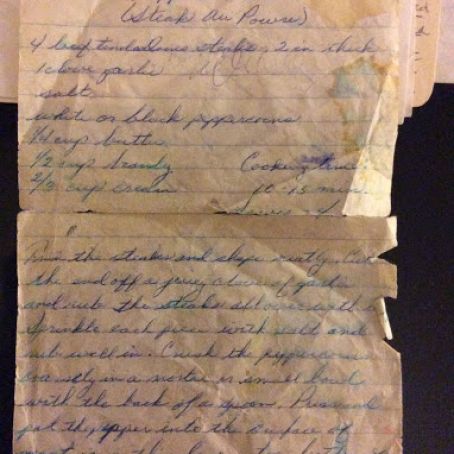 (Steak Au Poivre)
4 beef tenderloin steaks, 2 in thick
1 clove garlic
salt
white or black peppercorns
1/4 cup butter
1/2 cup brandy Cooking time
2/3 cup cream 10-15 min.
Serves 4
Trim the steaks and shape neatly. Cut
the end off a juicy clove of garlic
and rub the steaks all over with it
Sprinkle each piece with salt and
rub well in. Crush the peppercorns
coarsely in a mortar or small bowl
with the back of a spoon. Press and
pat the pepper into the surface of